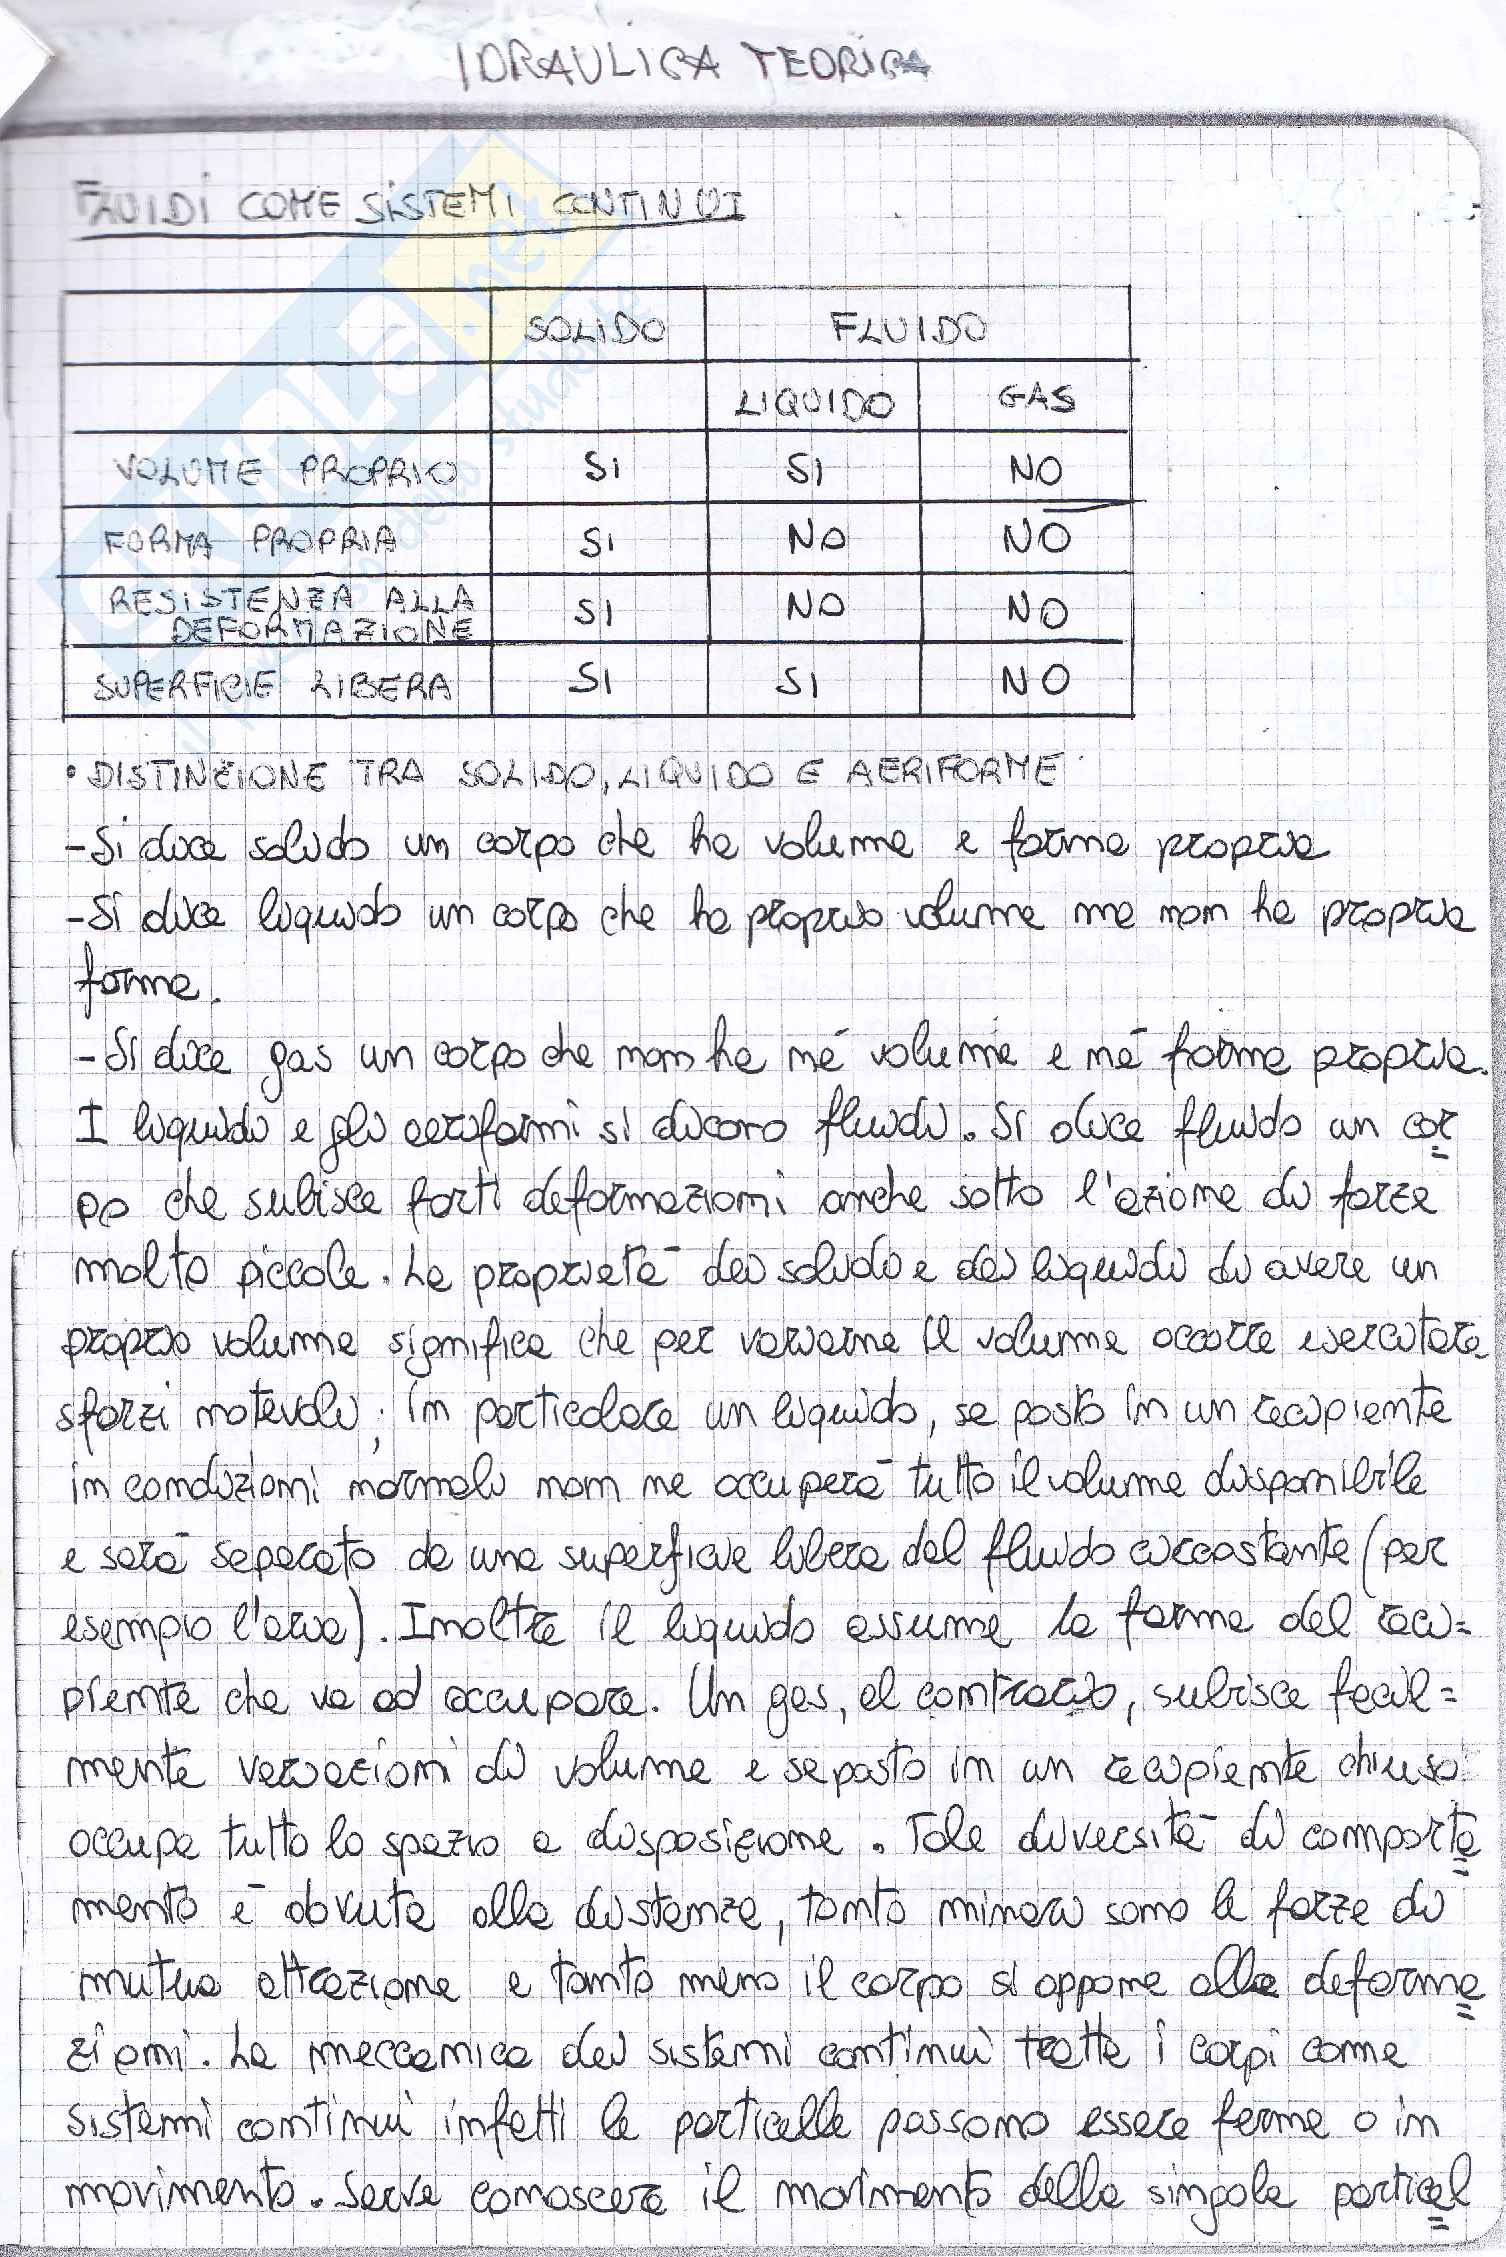 IDRAULICA TEORICA
FLUIDI COME SISTEMI CONTINUI
SOLIDO FLUIDO
LIQUIDO GAS
VOLUME PROPRIO SI SI NO
FORMA PROPRIA SI NO NO
RESISTENZA ALLA
DEFORMAZIONE SI NO NO
SUPERFICIE LIBERA SI SI NO
• DISTINZIONE TRA SOLIDO, LIQUIDO E AERIFORME
- Si dice solido un corpo che ha volume e forma propria
- Si dice liquido un corpo che ha proprio volume ma non ha propria
forma.
- Si dice gas un corpo che non ha né volume e né forma propria.
I liquidi e gli aeriformi si dicono fluidi. Si dice fluido un cor
po che subisce forti deformazioni anche sotto l'azione di forze
molto piccole. La proprietà dei solidi e dei liquidi di avere un
proprio volume significa che per variarne il volume occorre esercitare
sforzi notevoli; in particolare un liquido, se posto in un recipiente
in condizioni normali non ne occuperà tutto il volume disponibile
e sarà separato da una superficie libera dal fluido circostante (per
esempio l'aria). Inoltre il liquido assume la forma del reci=
piente che va ad occupare. Un gas, al contrario, subisce facil=
mente variazioni di volume e se posto in un recipiente chiuso
occupa tutto lo spazio a disposizione. Tale diversità di comporta
mento è dovuta alla distanza, tanto minori sono le forze di
mutua attrazione e tanto meno il corpo si oppone alla deforma
zioni. La meccanica dei sistemi continui tratta i corpi come
sistemi continui infatti le particelle possono essere ferme o in
movimento. Serve conoscere il movimento della singola particel